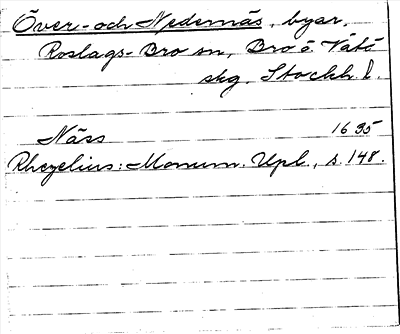 Över- och Nedernäs, byar,
Roslags-Bro sn, Bro ö. Vätö
skg, Stockh. l.
Näss 1635
Rhezelius: Monum. Upl., s. 148.